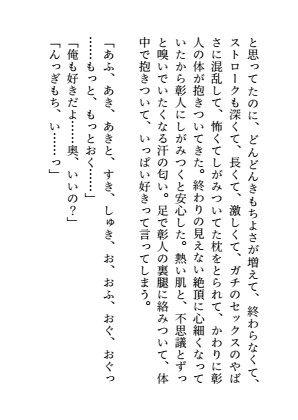 と思ってたのに、どんどんきもちよさが増えて、終わらなくて、
ストロークも深くて、長くて、激しくて、ガチのセックスのやば
さに混乱して、怖くてしがみついてた枕をとられて、かわりに彰
人の体が抱きついてきた。終わりの見えない絶頂に心細くなって
いたから彰人にしがみつくと安心した。熱い肌と、不思議とずっ
と嗅いでいたくなる汗の匂い。足で彰人の裏腿に絡みついて、体
中で抱きついて、いっぱい好きって言ってしまう。
「あふ、あき、あきと、すき、しゅき、お、おふ、おぐ、おぐっ
……もっと、もっとおく……」
「俺も好きだよ……奥、いいの？」
「んっぎもち、い……っ」